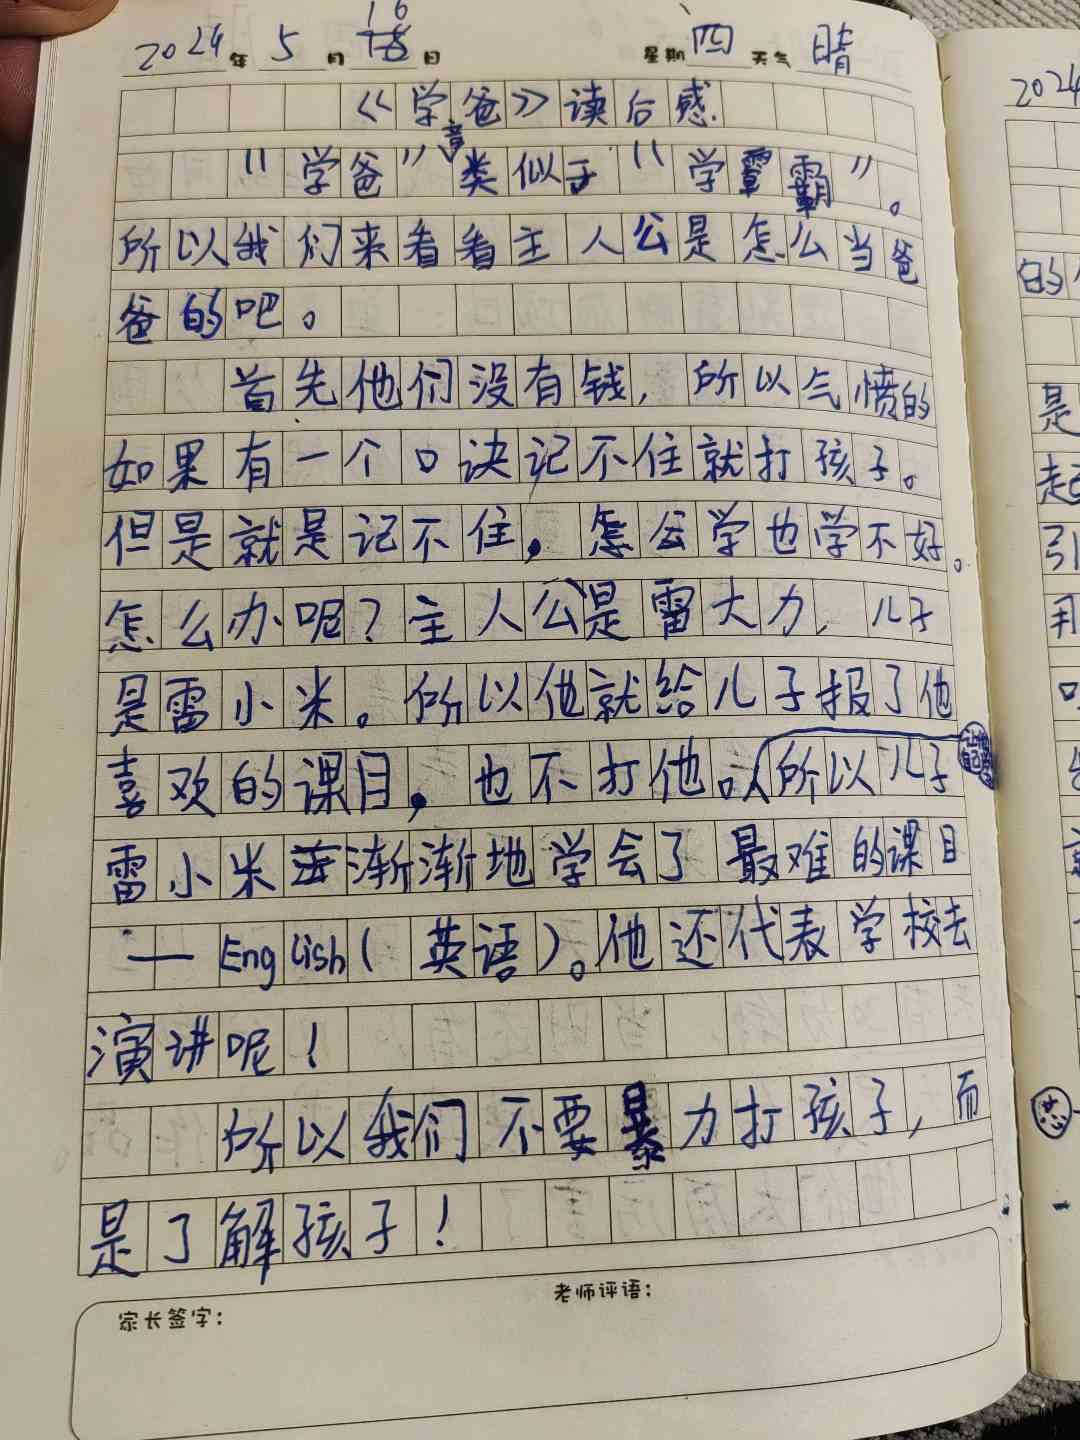 2024年5月16日 星期四 天气晴
《学爸》读后感
"学爸"意类似于"学霸"。
所以我们来看看主人公是怎么当爸
爸的吧。
首先他们没有钱，所以气愤的
如果有一个口诀记不住就打孩子。
但是就是记不住，怎么学也学不好。
怎么办呢？主人公是雷大力，儿子
是雷小米。所以他就给儿子报了他
喜欢的课目，也不打他。所以儿子
雷小米渐渐地学会了最难的课目
——English(英语)。他还代表学校去
演讲呢！
所以我们不要暴力打孩子，而
是了解孩子！
家长签字：
老师评语：
2024
的
是
起
引
用